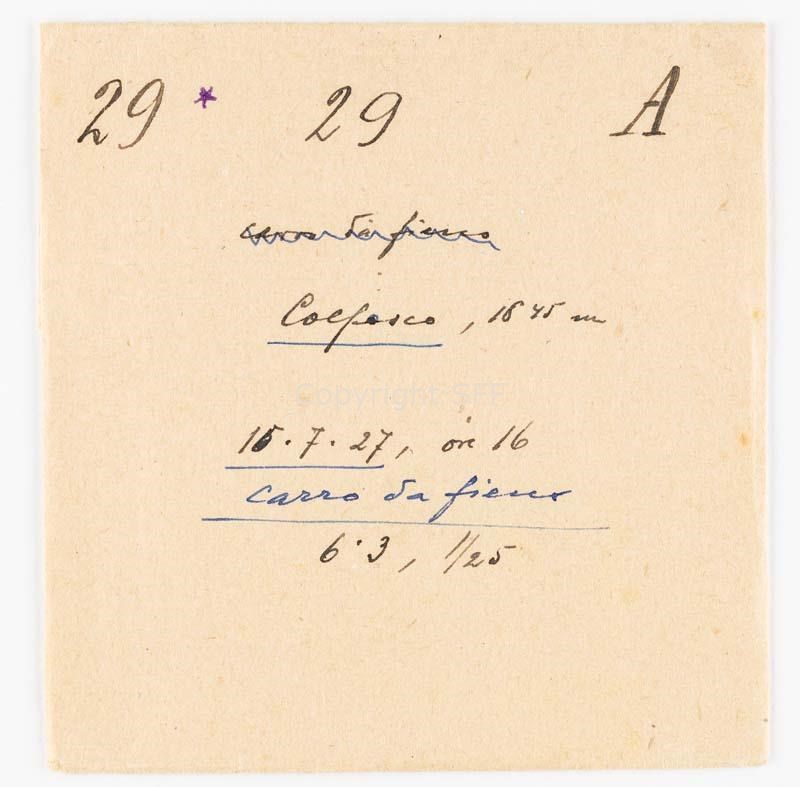 29 * 29 A
carro da fieno
Colfosco, 1645 m
Copyright SFF
15.7.27, ore 16
carro da fieno
6.3, 1/25